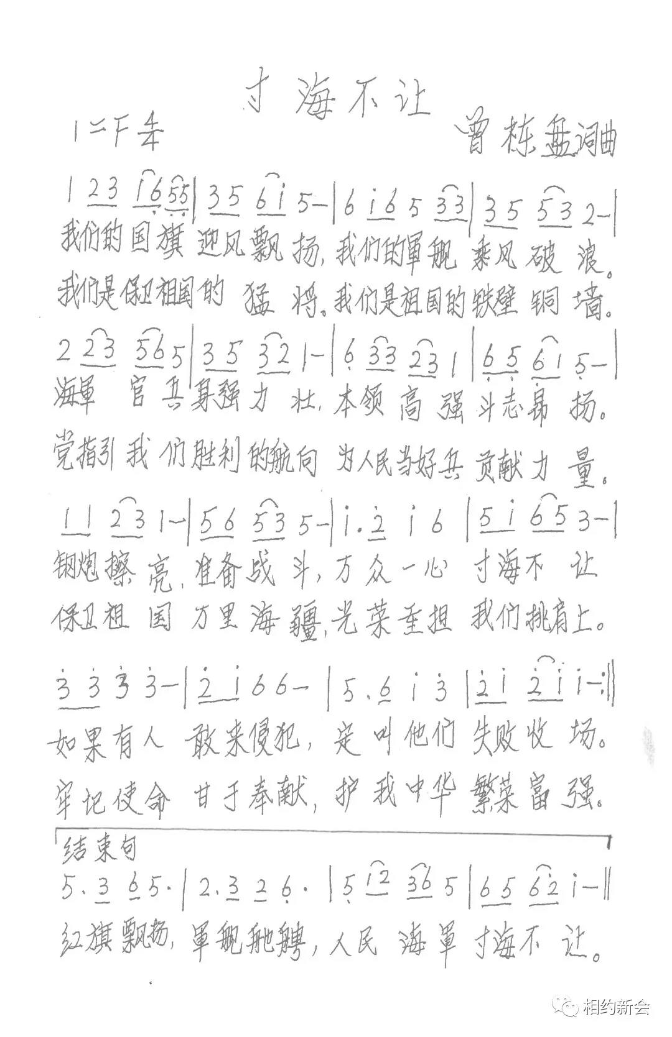 寸海不让
1=F 4/4 曾栋盘词曲
1 23 i6 55 | 35 6i 5- | 6 i6 5 33 | 35 53 2- |
我们的国旗 迎风飘扬,我们的軍舰 乘风破浪。
我们是保卫祖国的 猛将。我们是祖国的铁壁铜墙。
2 23 56 5 | 35 32 1- | 6 33 23 1 | 65 61 5- |
海軍 官兵身强力壮,本领高强斗志昴扬。
党指引我们胜利的航向 为人民当好兵 贡献力量。
11 23 1- | 56 53 5- | i. 2 i 6 | 5i 65 3- |
钢炮擦亮,准备战斗,万众一心 寸海不让
保卫祖国万里海疆,光荣重担 我们挑肩上。
33 3 3- | 2i 66- | 5. 6 i 3 | 2i 2i i- :||
如果有人 敢来侵犯,定叫他们 失败收场。
牢记使命 甘于奉献,护我中华 繁荣富强。
结束句
5. 3 65. | 2. 3 2 6. | 5 i2 36 5 | 65 62 i- ||
红旗飘扬,軍舰驰骋,人民海軍寸海不让。
相约新会